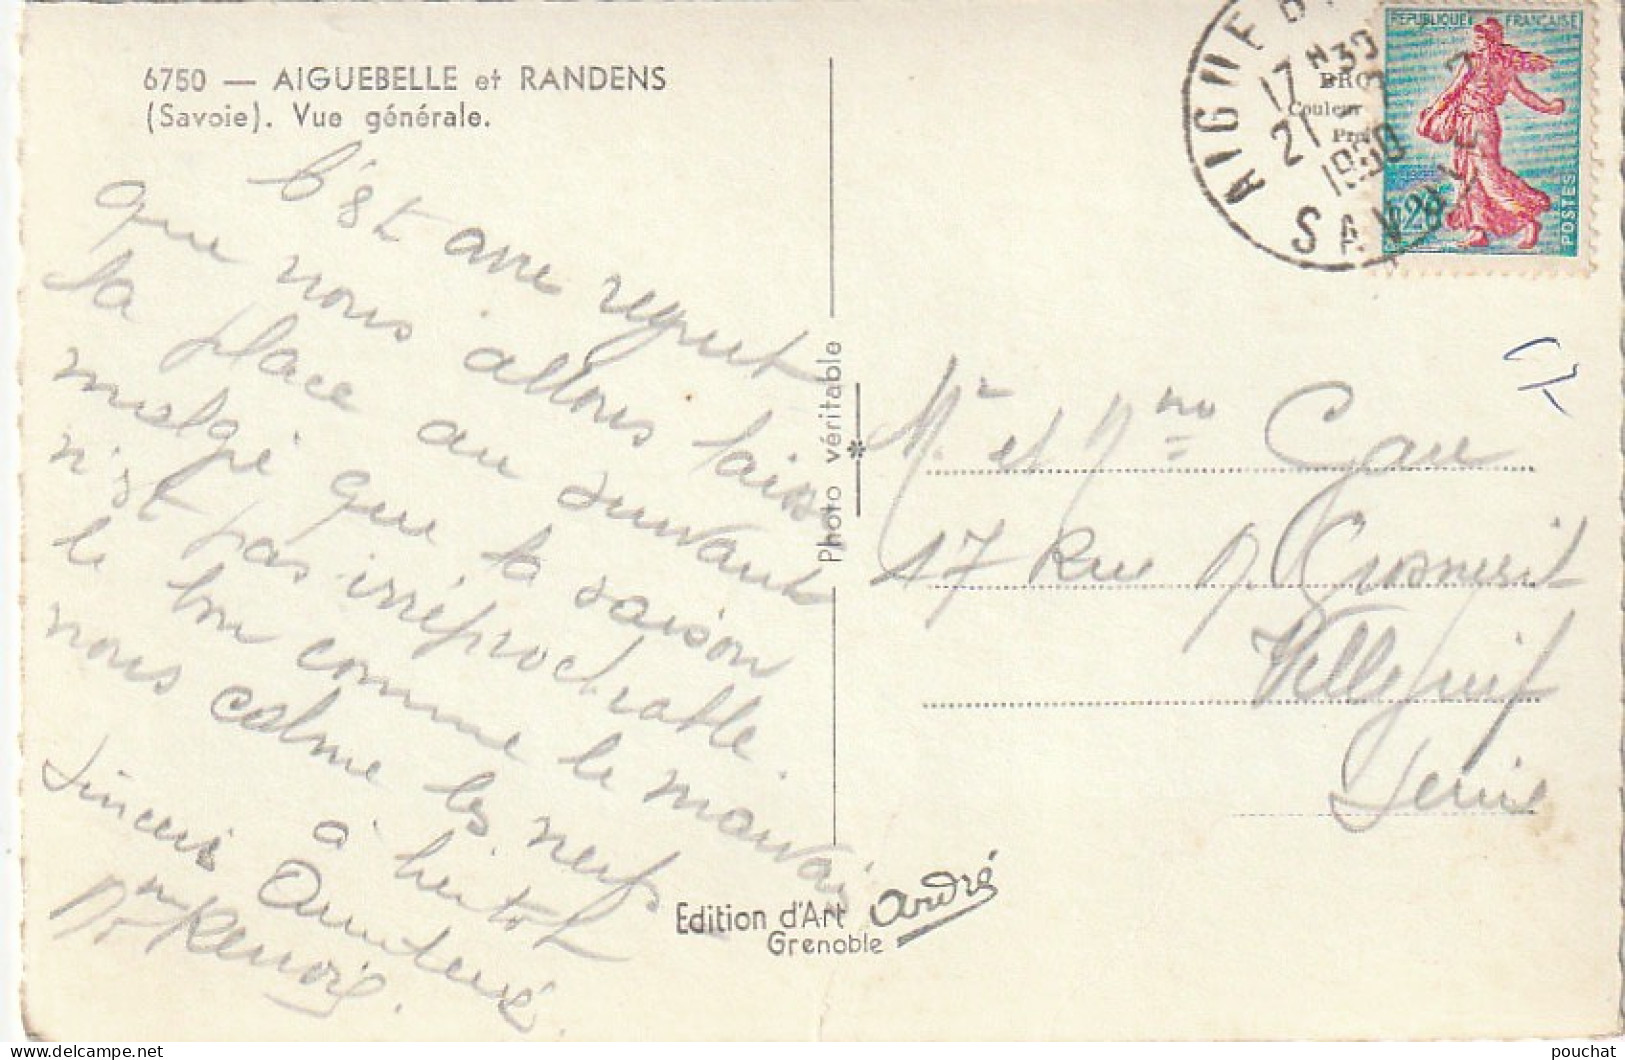 6750 — AIGUEBELLE et RANDENS
(Savoie). Vue générale.
c'est avec regret
que nous allons laisser
la place au suivant
malgré que la saison
n'est pas irréprochable.
le bon comme le mauvais
nous calme les nerfs
à bientôt
Sincères Amitiés.
Photo véritable
Edition d'Art André
Grenoble
REPUBLIQUE FRANÇAISE
0,20
POSTES
AIGUEBELLE
17 H 30
21
1960
SAVOIE
Mr et Mme
17 Rue
Villejuif
Seine
pouchat